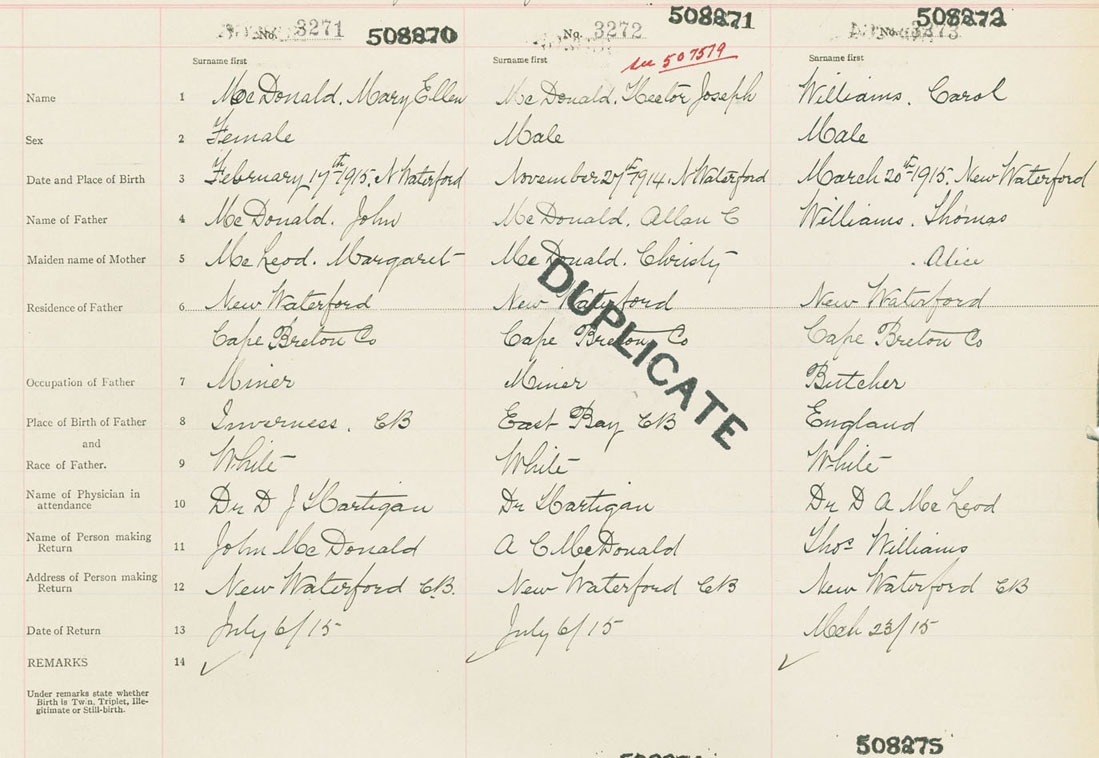 No. 3271 508270 No. 3272 508271 No. 3273 508272
see 507519
Surname first Surname first Surname first
Name 1 McDonald. Mary Ellen McDonald. Hector Joseph Williams. Carol
Sex 2 Female Male Male
Date and Place of Birth 3 February 17th 1915. N Waterford November 27th 1914. N Waterford March 20th 1915. New Waterford
Name of Father 4 McDonald. John McDonald. Allan C Williams. Thomas
Maiden name of Mother 5 McLeod. Margaret McDonald. Christy . Alice
Residence of Father 6 New Waterford New Waterford New Waterford
Cape Breton Co Cape Breton Co Cape Breton Co
DUPLICATE
Occupation of Father 7 Miner Miner Butcher
Place of Birth of Father 8 Inverness. CB East Bay CB England
and
Race of Father. 9 White White White
Name of Physician in
attendance 10 Dr D J Hartigan Dr Hartigan Dr D A McLeod
Name of Person making
Return 11 John McDonald A C McDonald Thos Williams
Address of Person making
Return 12 New Waterford C.B. New Waterford CB New Waterford CB
Date of Return 13 July 6/15 July 6/15 Mch 23/15
REMARKS 14
Under remarks state whether
Birth is Twin, Triplet, Ille-
gitimate or Still-birth.
508275